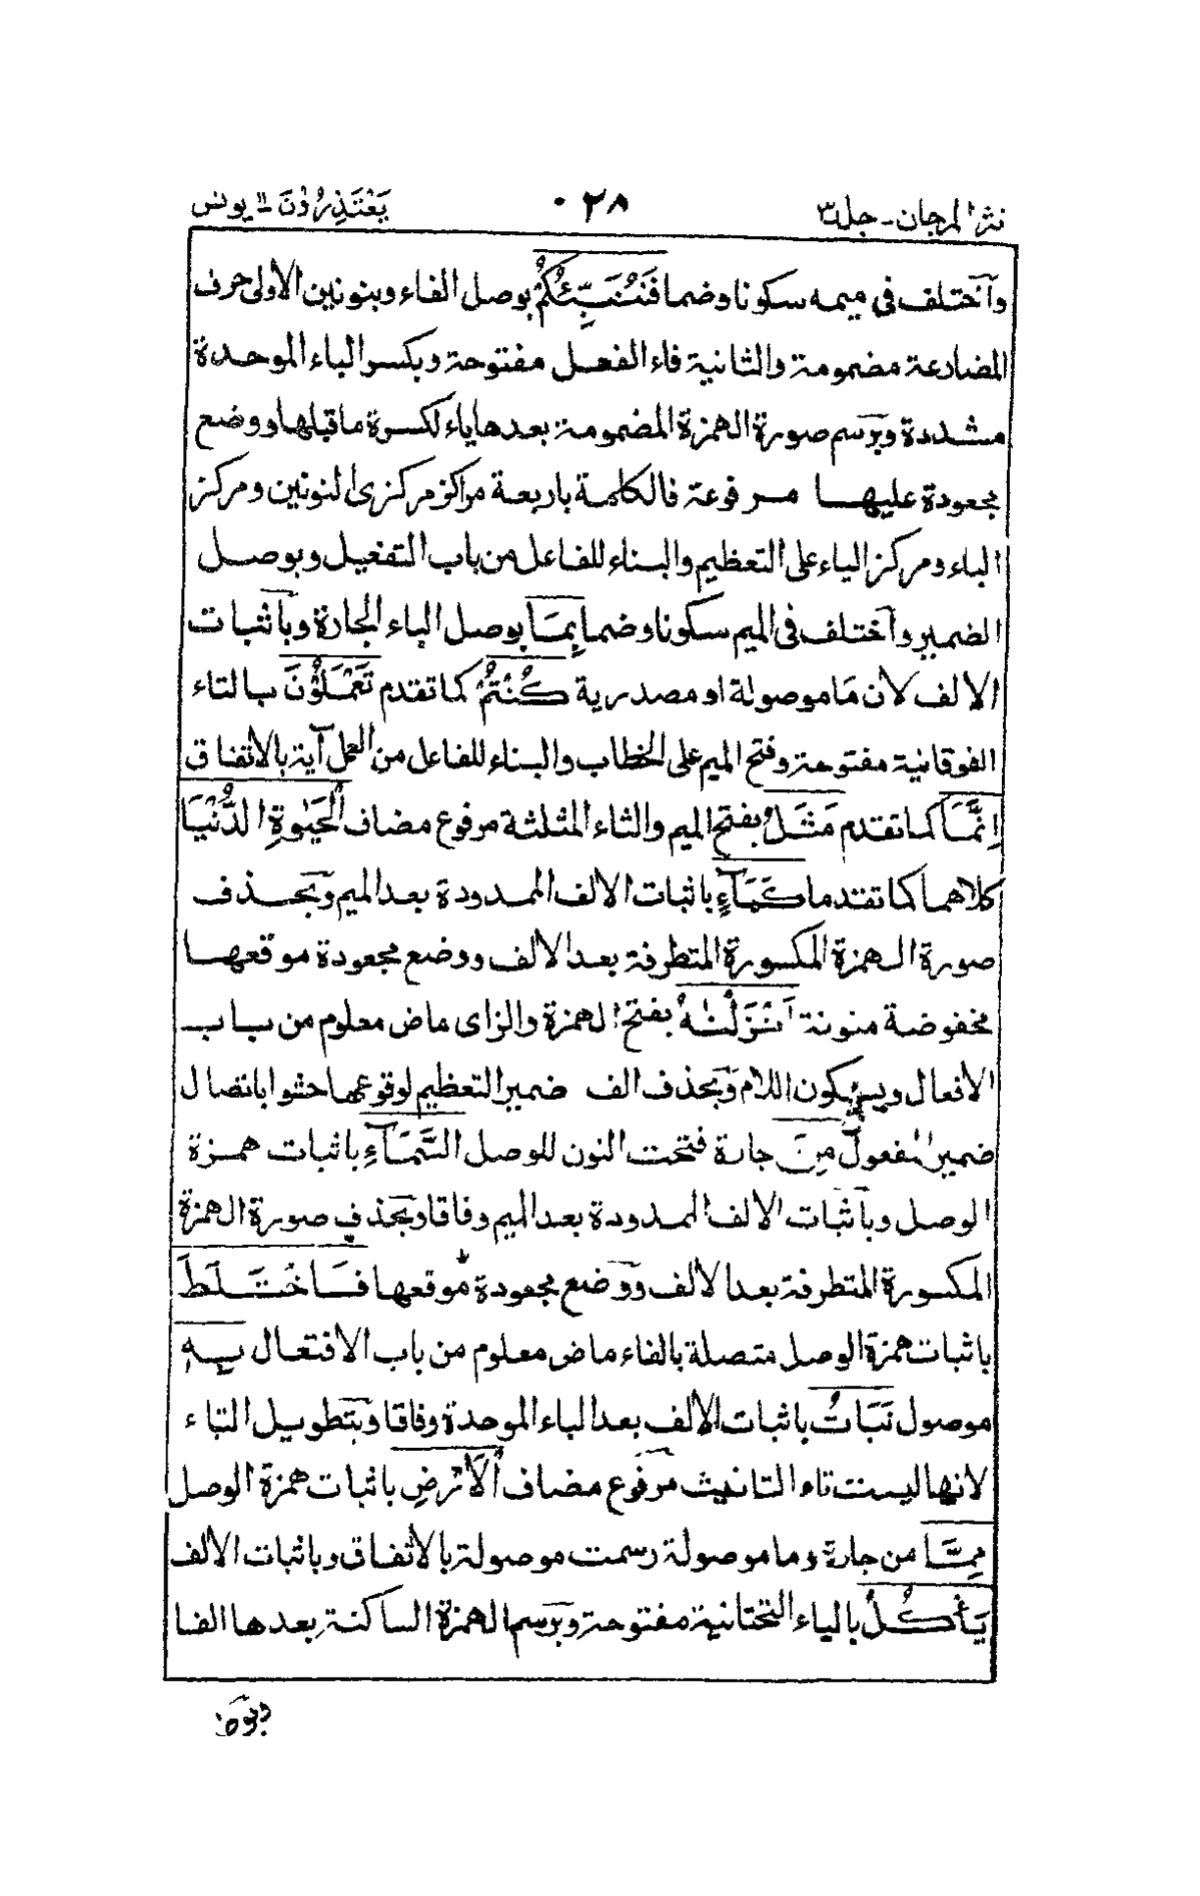 نثر المرجان - جلد ٣
٢٨٠
يَعْتَذِرُوْنَ ١١ يونس
وآختلف فى ميمه سكونا وضما فَنُنَبِّئُكُمْ بوصل الفاء وبنونين الاولى حرف
المضارعة مضمومة والثانية فاء الفعل مفتوحة وبكسر الباء الموحدة
مشددة وبرسم صورة الهمزة المضمومة بعدها ياء لكسرة ما قبلها ووضع
مجعودة عليها مرفوعة فالكلمة باربعة مراكز مركزى النونين ومركز
الباء ومركز الياء على التعظيم والبناء للفاعل من باب التفعيل وبوصل
الضمير وآختلف فى الميم سكونا وضما بِمَا بوصل الباء الجارة وبآثبات
الالف لان مَا موصولة او مصدرية كُنْتُمْ كما تقدم تَعْمَلُوْنَ بالتاء
الفوقانية مفتوحة وفتح الميم على الخطاب والبناء للفاعل من العمل آية بالاتفاق
اِنَّمَا كما تقدم مَثَلُ بفتح الميم والثاء المثلثة مرفوع مضاف الْحَيٰوةِ الدُّنْيَا
كلاهما كما تقدما كَمَآءٍ باثبات الالف الممدودة بعد الميم وبحذف
صورة الهمزة المكسورة المتطرفة بعد الالف ووضع مجعودة موقعها
مخفوضة منونة اَنْزَلْنٰهُ بفتح الهمزة والزاى ماض معلوم من باب
الافعال وبسكون اللام وبحذف الف ضمير التعظيم لوقوعها حشوا باتصال
ضمير المفعول مِنَ جارة فتحت النون للوصل السَّمَآءِ باثبات همزة
الوصل وبآثبات الالف الممدودة بعد الميم وفاقا وبحذف صورة الهمزة
المكسورة المتطرفة بعد الالف ووضع مجعودة موقعها فَاخْتَلَطَ
باثبات همزة الوصل متصلة بالفاء ماض معلوم من باب الافتعال بِهٖ
موصول نَبَاتُ باثبات الالف بعد الباء الموحدة وفاقا وبتطويل التاء
لانها ليست تاء التانيث مرفوع مضاف الْاَرْضِ باثبات همزة الوصل
مِمَّا من جارة وما موصولة رسمت موصولة بالاتفاق وباثبات الالف
يَأْكُلُ بالياء التحتانية مفتوحة وبرسم الهمزة الساكنة بعدها الفا